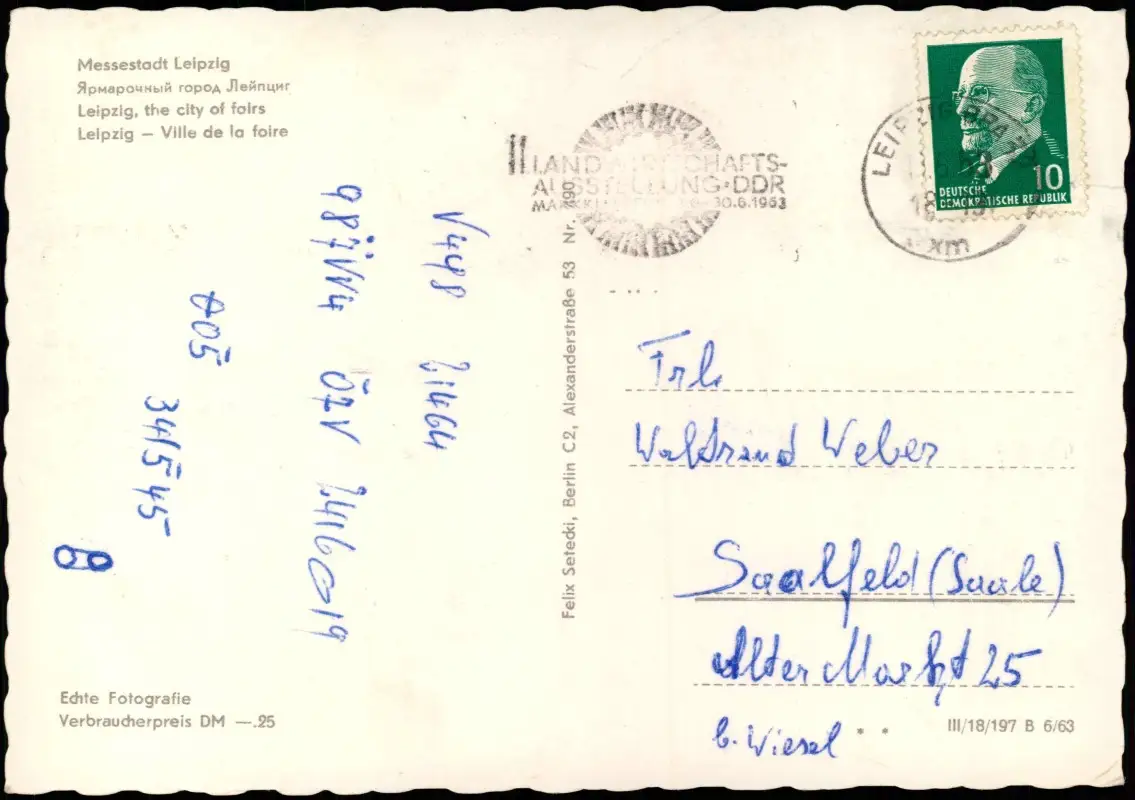 Messestadt Leipzig
Ярмарочный город Лейпциг
Leipzig, the city of fairs
Leipzig — Ville de la foire
11. LANDWIRTSCHAFTS-
AUSSTELLUNG·DDR
30.6.1963
LEIPZIG
18
xm
10
DEUTSCHE
DEMOKRATISCHE REPUBLIK
V498
987VV4 ÖZV
005
34/545
8
Felix Setecki, Berlin C2, Alexanderstraße 53 Nr. 490
Frl.
Waltraud Weber
Saalfeld (Saale)
Alter Markt 25
b. Wiesel
Echte Fotografie
Verbraucherpreis DM —.25
III/18/197 B 6/63